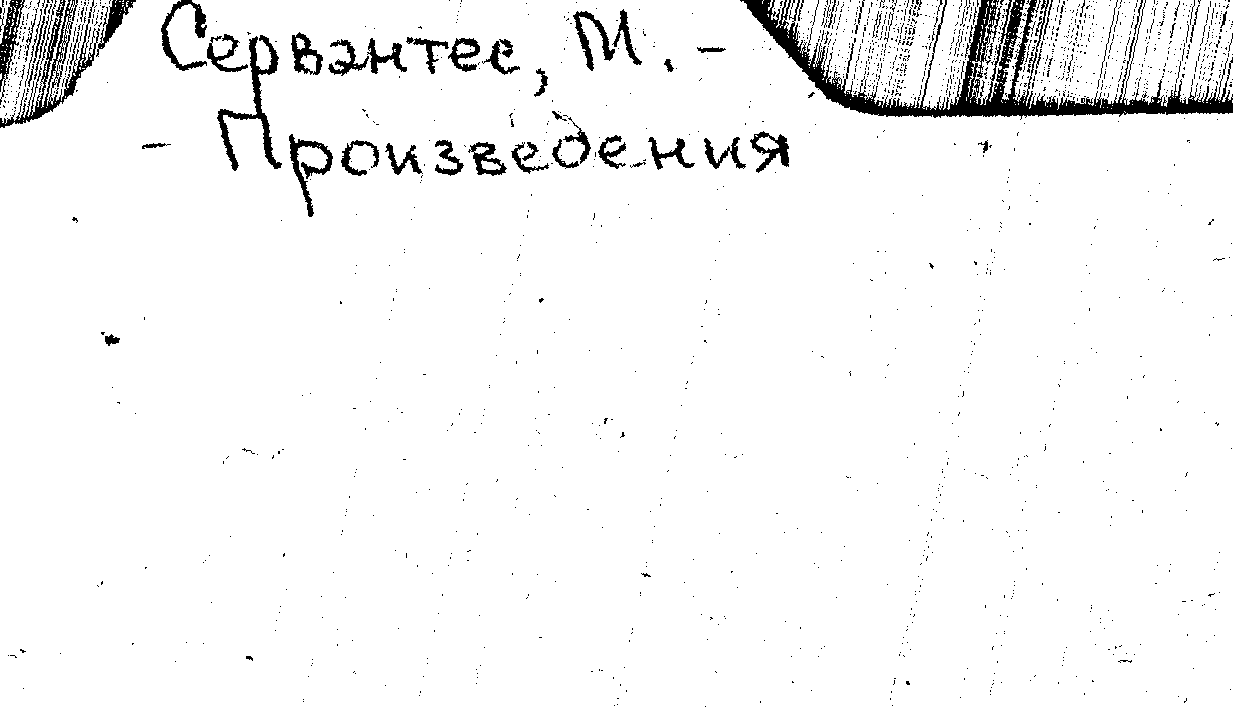 Сервантес, М. -
- Произведения